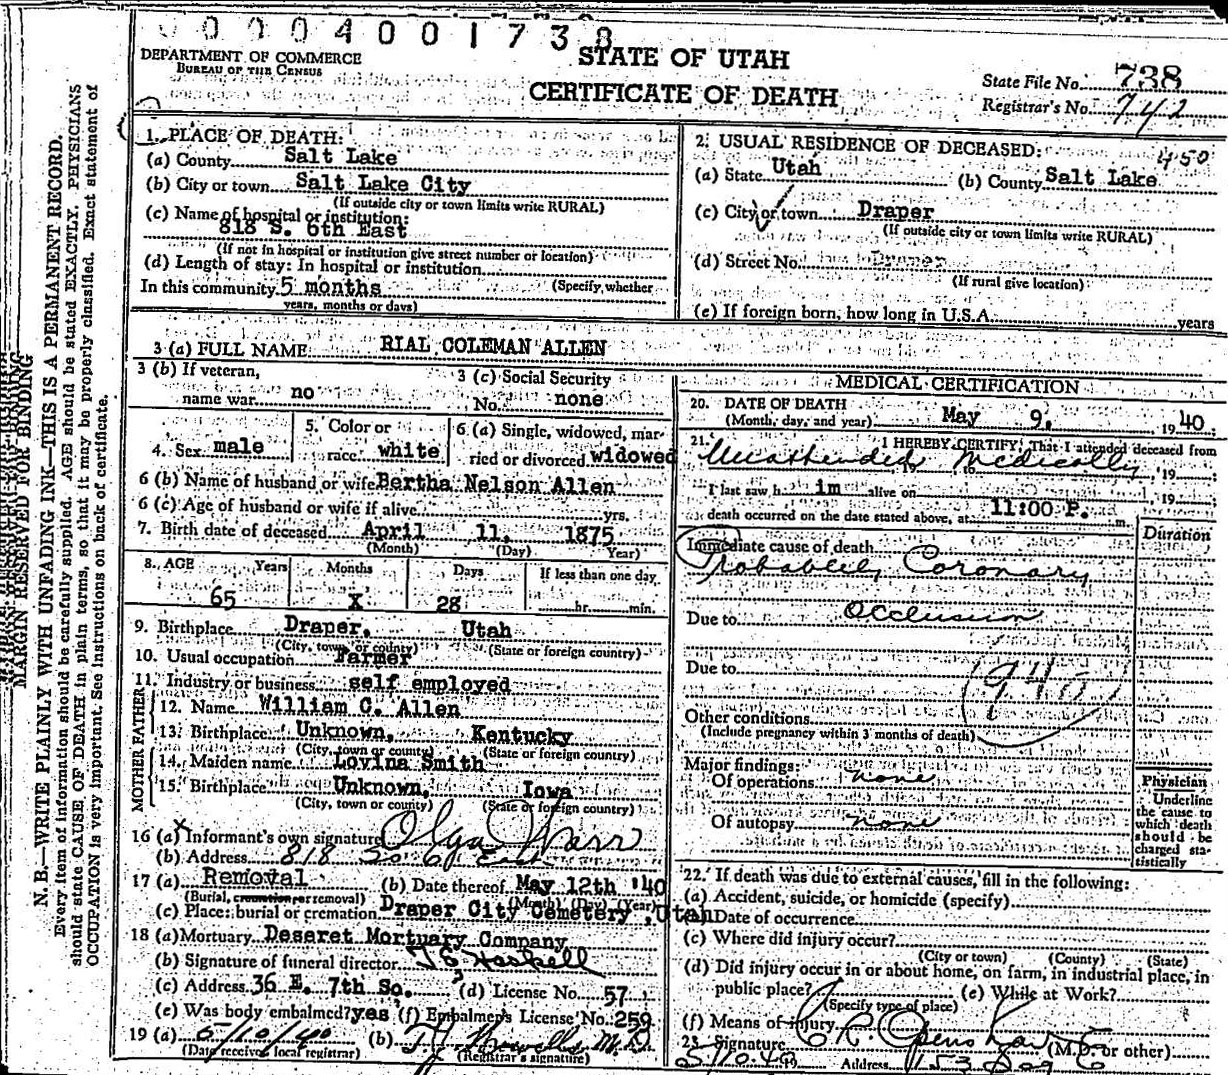 0 0 0 4 0 0 1 7 3 8
DEPARTMENT OF COMMERCE
BUREAU OF THE CENSUS
STATE OF UTAH
CERTIFICATE OF DEATH
State File No. 738
Registrar's No. 742
MARGIN RESERVED FOR BINDING
N. B.—WRITE PLAINLY WITH UNFADING INK—THIS IS A PERMANENT RECORD.
Every item of information should be carefully supplied. AGE should be stated EXACTLY. PHYSICIANS
should state CAUSE OF DEATH in plain terms, so that it may be properly classified. Exact statement of
OCCUPATION is very important. See Instructions on back of certificate.
1. PLACE OF DEATH:
(a) County Salt Lake
(b) City or town Salt Lake City
(If outside city or town limits write RURAL)
(c) Name of hospital or institution:
818 S. 6th East
(If not in hospital or institution give street number or location)
(d) Length of stay: In hospital or institution
In this community 5 months (Specify whether
years, months or days)
2. USUAL RESIDENCE OF DECEASED: 450
(a) State Utah (b) County Salt Lake
(c) City or town Draper
(If outside city or town limits write RURAL)
(d) Street No.
(If rural give location)
(e) If foreign born, how long in U.S.A. years
3 (a) FULL NAME RIAL COLEMAN ALLEN
3 (b) If veteran,
name war no
3 (c) Social Security
No. none
4. Sex male
5. Color or
race white
6 (a) Single, widowed, mar-
ried or divorced widowed
6 (b) Name of husband or wife Bertha Nelson Allen
6 (c) Age of husband or wife if alive yrs.
7. Birth date of deceased April 11, 1875
(Month) (Day) Year)
8. AGE Years Months Days If less than one day
65 X 28 hr. min.
9. Birthplace Draper, Utah
(City, town or county) (State or foreign country)
10. Usual occupation Farmer
11. Industry or business self employed
FATHER
12. Name William C. Allen
13. Birthplace Unknown, Kentucky
(City, town or county) (State or foreign country)
MOTHER
14. Maiden name Lovina Smith
15. Birthplace Unknown, Iowa
(City, town or county) (State or foreign country)
16 (a) x Informant's own signature Olga Warr
(b) Address 818 So 6 East
17 (a) Removal (b) Date thereof May 12th '40
(Burial, cremation or removal) (Month) (Day) (Year)
(c) Place: burial or cremation Draper City Cemetery, Utah
18 (a) Mortuary Deseret Mortuary Company
(b) Signature of funeral director
(c) Address 36 E. 7th So. (d) License No. 57
(e) Was body embalmed? yes (f) Embalmer's License No. 259
19 (a) 5/10/40 (b) M.D.
(Date received local registrar) (Registrar's signature)
MEDICAL CERTIFICATION
20. DATE OF DEATH
(Month, day, and year) May 9, 1940.
21. I HEREBY CERTIFY, That I attended deceased from
Unattended Medically, 19
I last saw him alive on , 19
death occurred on the date stated above, at 11:00 P. m.
Duration
Immediate cause of death
Probablely Coronary
Due to Occlusion
Due to
Other conditions
(Include pregnancy within 3 months of death)
Major findings:
Of operations none
Of autopsy none
Physician
Underline
the cause to
which death
should be
charged sta-
tistically
22. If death was due to external causes, fill in the following:
(a) Accident, suicide, or homicide (specify)
(b) Date of occurrence
(c) Where did injury occur?
(City or town) (County) (State)
(d) Did injury occur in or about home, on farm, in industrial place, in
public place? (e) While at Work?
(Specify type of place)
(f) Means of injury
23. Signature (M.D. or other)
Address